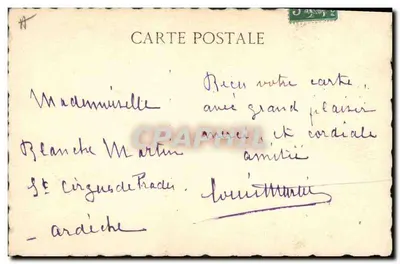 CARTE POSTALE
Mademoiselle
Blanche Martin
St Cirgues de Prades.
- ardèche
Reçu votre carte,
avec grand plaisir
et cordiale
amitié
Louis Martin